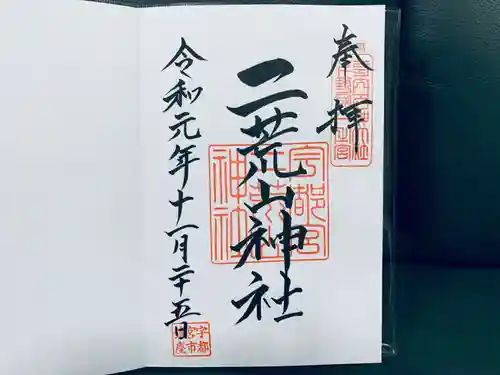 奉拝
二荒山神社
令和元年十一月二十五日
宇都宮
神社
宇都
宮市